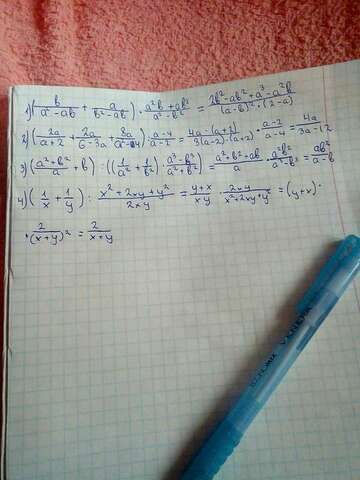 1) (b/(a²-ab) + a/(b²-ab)) · (a²b+ab²)/(a²-b²) = (2b²-ab²+a³-a²b)/((a-b)²·(2-a))
2) (2a/(a+2) + 2a/(6-3a) + 8a/(a²-4)) · (a-4)/(a-2) = (4a·(a+2))/(3(a-2)·(a+2)) · (a-2)/(a-4) = 4a/(3a-12
3) ((a²+b²)/a + b) : ((1/a² + 1/b²) · (a³-b³)/(a²+b²)) = (a²+b²+ab)/a · a²b²/(a³-b³) = ab²/(a-b)
4) (1/x + 1/y) : (x²+2xy+y²)/(2xy) = (y+x)/(xy) · 2xy/(x²+2xy+y²) = (y+x) ·
· 2/(x+y)² = 2/(x+y)